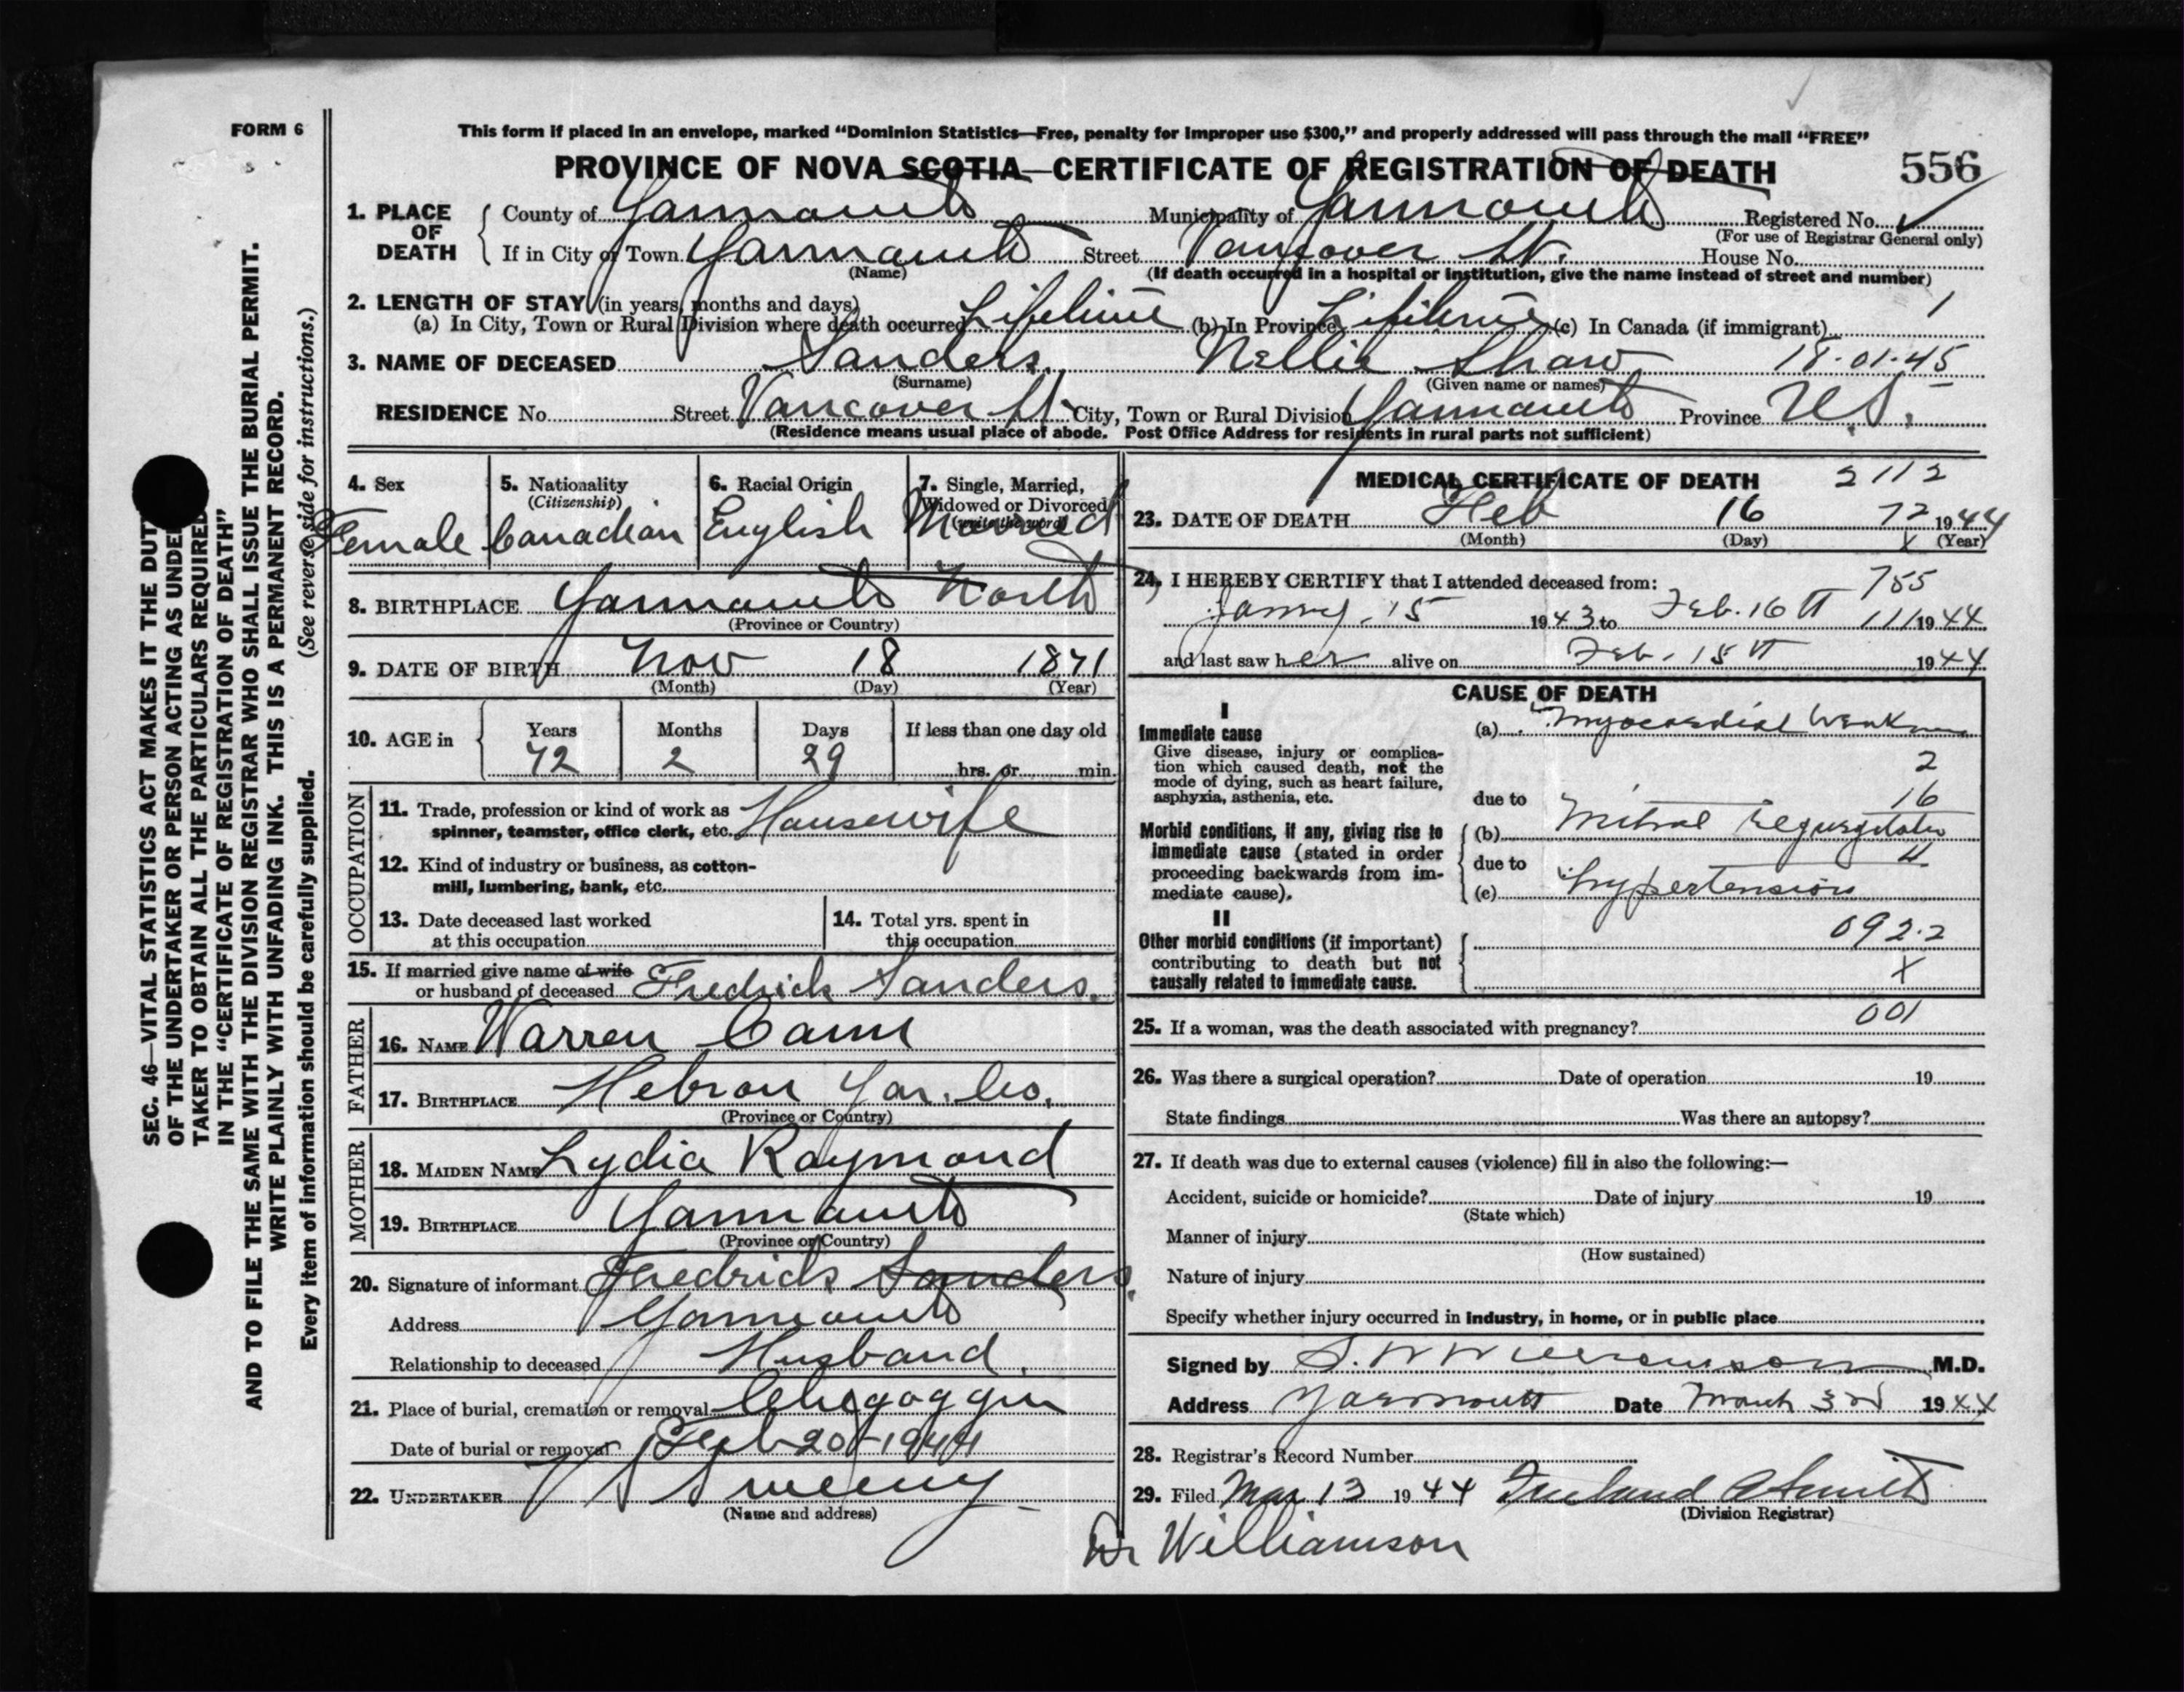 FORM 6
This form if placed in an envelope, marked “Dominion Statistics—Free, penalty for improper use $300,” and properly addressed will pass through the mail “FREE”
PROVINCE OF NOVA SCOTIA—CERTIFICATE OF REGISTRATION OF DEATH 556
1. PLACE OF DEATH County of Yarmouth Municipality of Yarmouth Registered No. ✓
(For use of Registrar General only)
If in City or Town Yarmouth Street Vancover St. House No.
(Name) (If death occurred in a hospital or institution, give the name instead of street and number)
2. LENGTH OF STAY (in years, months and days)
(a) In City, Town or Rural Division where death occurred Lifetime (b) In Province Lifetime (c) In Canada (if immigrant) 1
3. NAME OF DECEASED Sanders. Nellie Shaw 18-01-45
(Surname) (Given name or names)
RESIDENCE No. Street Vancover St City, Town or Rural Division Yarmouth Province N.S.
(Residence means usual place of abode. Post Office Address for residents in rural parts not sufficient)
4. Sex
Female
5. Nationality
(Citizenship)
Canadian
6. Racial Origin
English
7. Single, Married,
Widowed or Divorced
(write the word)
Married
8. BIRTHPLACE Yarmouth North
(Province or Country)
9. DATE OF BIRTH Nov 18 1871
(Month) (Day) (Year)
10. AGE in Years Months Days If less than one day old
72 2 29 hrs. or min.
OCCUPATION
11. Trade, profession or kind of work as
spinner, teamster, office clerk, etc. Housewife
12. Kind of industry or business, as cotton-
mill, lumbering, bank, etc.
13. Date deceased last worked
at this occupation
14. Total yrs. spent in
this occupation
15. If married give name of wife
or husband of deceased Fredrick Sanders.
FATHER
16. NAME Warren Cann
17. BIRTHPLACE Hebron Yar. Co.
(Province or Country)
MOTHER
18. MAIDEN NAME Lydia Raymond
19. BIRTHPLACE Yarmouth
(Province or Country)
20. Signature of informant Fredrick Sanders.
Address Yarmouth
Relationship to deceased Husband.
21. Place of burial, cremation or removal Chegoggin
Date of burial or removal Feb 20-1944
22. UNDERTAKER V S Sweeny
(Name and address)
MEDICAL CERTIFICATE OF DEATH 2112
23. DATE OF DEATH Feb 16 72 1944
(Month) (Day) X (Year)
24. I HEREBY CERTIFY that I attended deceased from: 755
15 1943 to Feb. 16th 111 1944
and last saw her alive on Feb. 15th 1944
CAUSE OF DEATH
I
Immediate cause
Give disease, injury or complica-
tion which caused death, not the
mode of dying, such as heart failure,
asphyxia, asthenia, etc.
(a) Myocardial Weakness
2
16
due to
Morbid conditions, if any, giving rise to
immediate cause (stated in order
proceeding backwards from im-
mediate cause).
(b) Mitral Regurgitation
due to
(c) hypertension
II
Other morbid conditions (if important)
contributing to death but not
causally related to immediate cause.
092.2
X
001
25. If a woman, was the death associated with pregnancy?
26. Was there a surgical operation? Date of operation 19
State findings Was there an autopsy?
27. If death was due to external causes (violence) fill in also the following:—
Accident, suicide or homicide? Date of injury 19
(State which)
Manner of injury
(How sustained)
Nature of injury
Specify whether injury occurred in industry, in home, or in public place
Signed by S. W Williamson M.D.
Address Yarmouth Date March 3rd 1944
28. Registrar's Record Number
29. Filed Mar 13 1944 Smith
(Division Registrar)
Dr Williamson
SEC. 46—VITAL STATISTICS ACT MAKES IT THE DUTY
OF THE UNDERTAKER OR PERSON ACTING AS UNDER
TAKER TO OBTAIN ALL THE PARTICULARS REQUIRED
IN THE “CERTIFICATE OF REGISTRATION OF DEATH”
AND TO FILE THE SAME WITH THE DIVISION REGISTRAR WHO SHALL ISSUE THE BURIAL PERMIT.
WRITE PLAINLY WITH UNFADING INK. THIS IS A PERMANENT RECORD.
Every item of information should be carefully supplied. (See reverse side for instructions.)